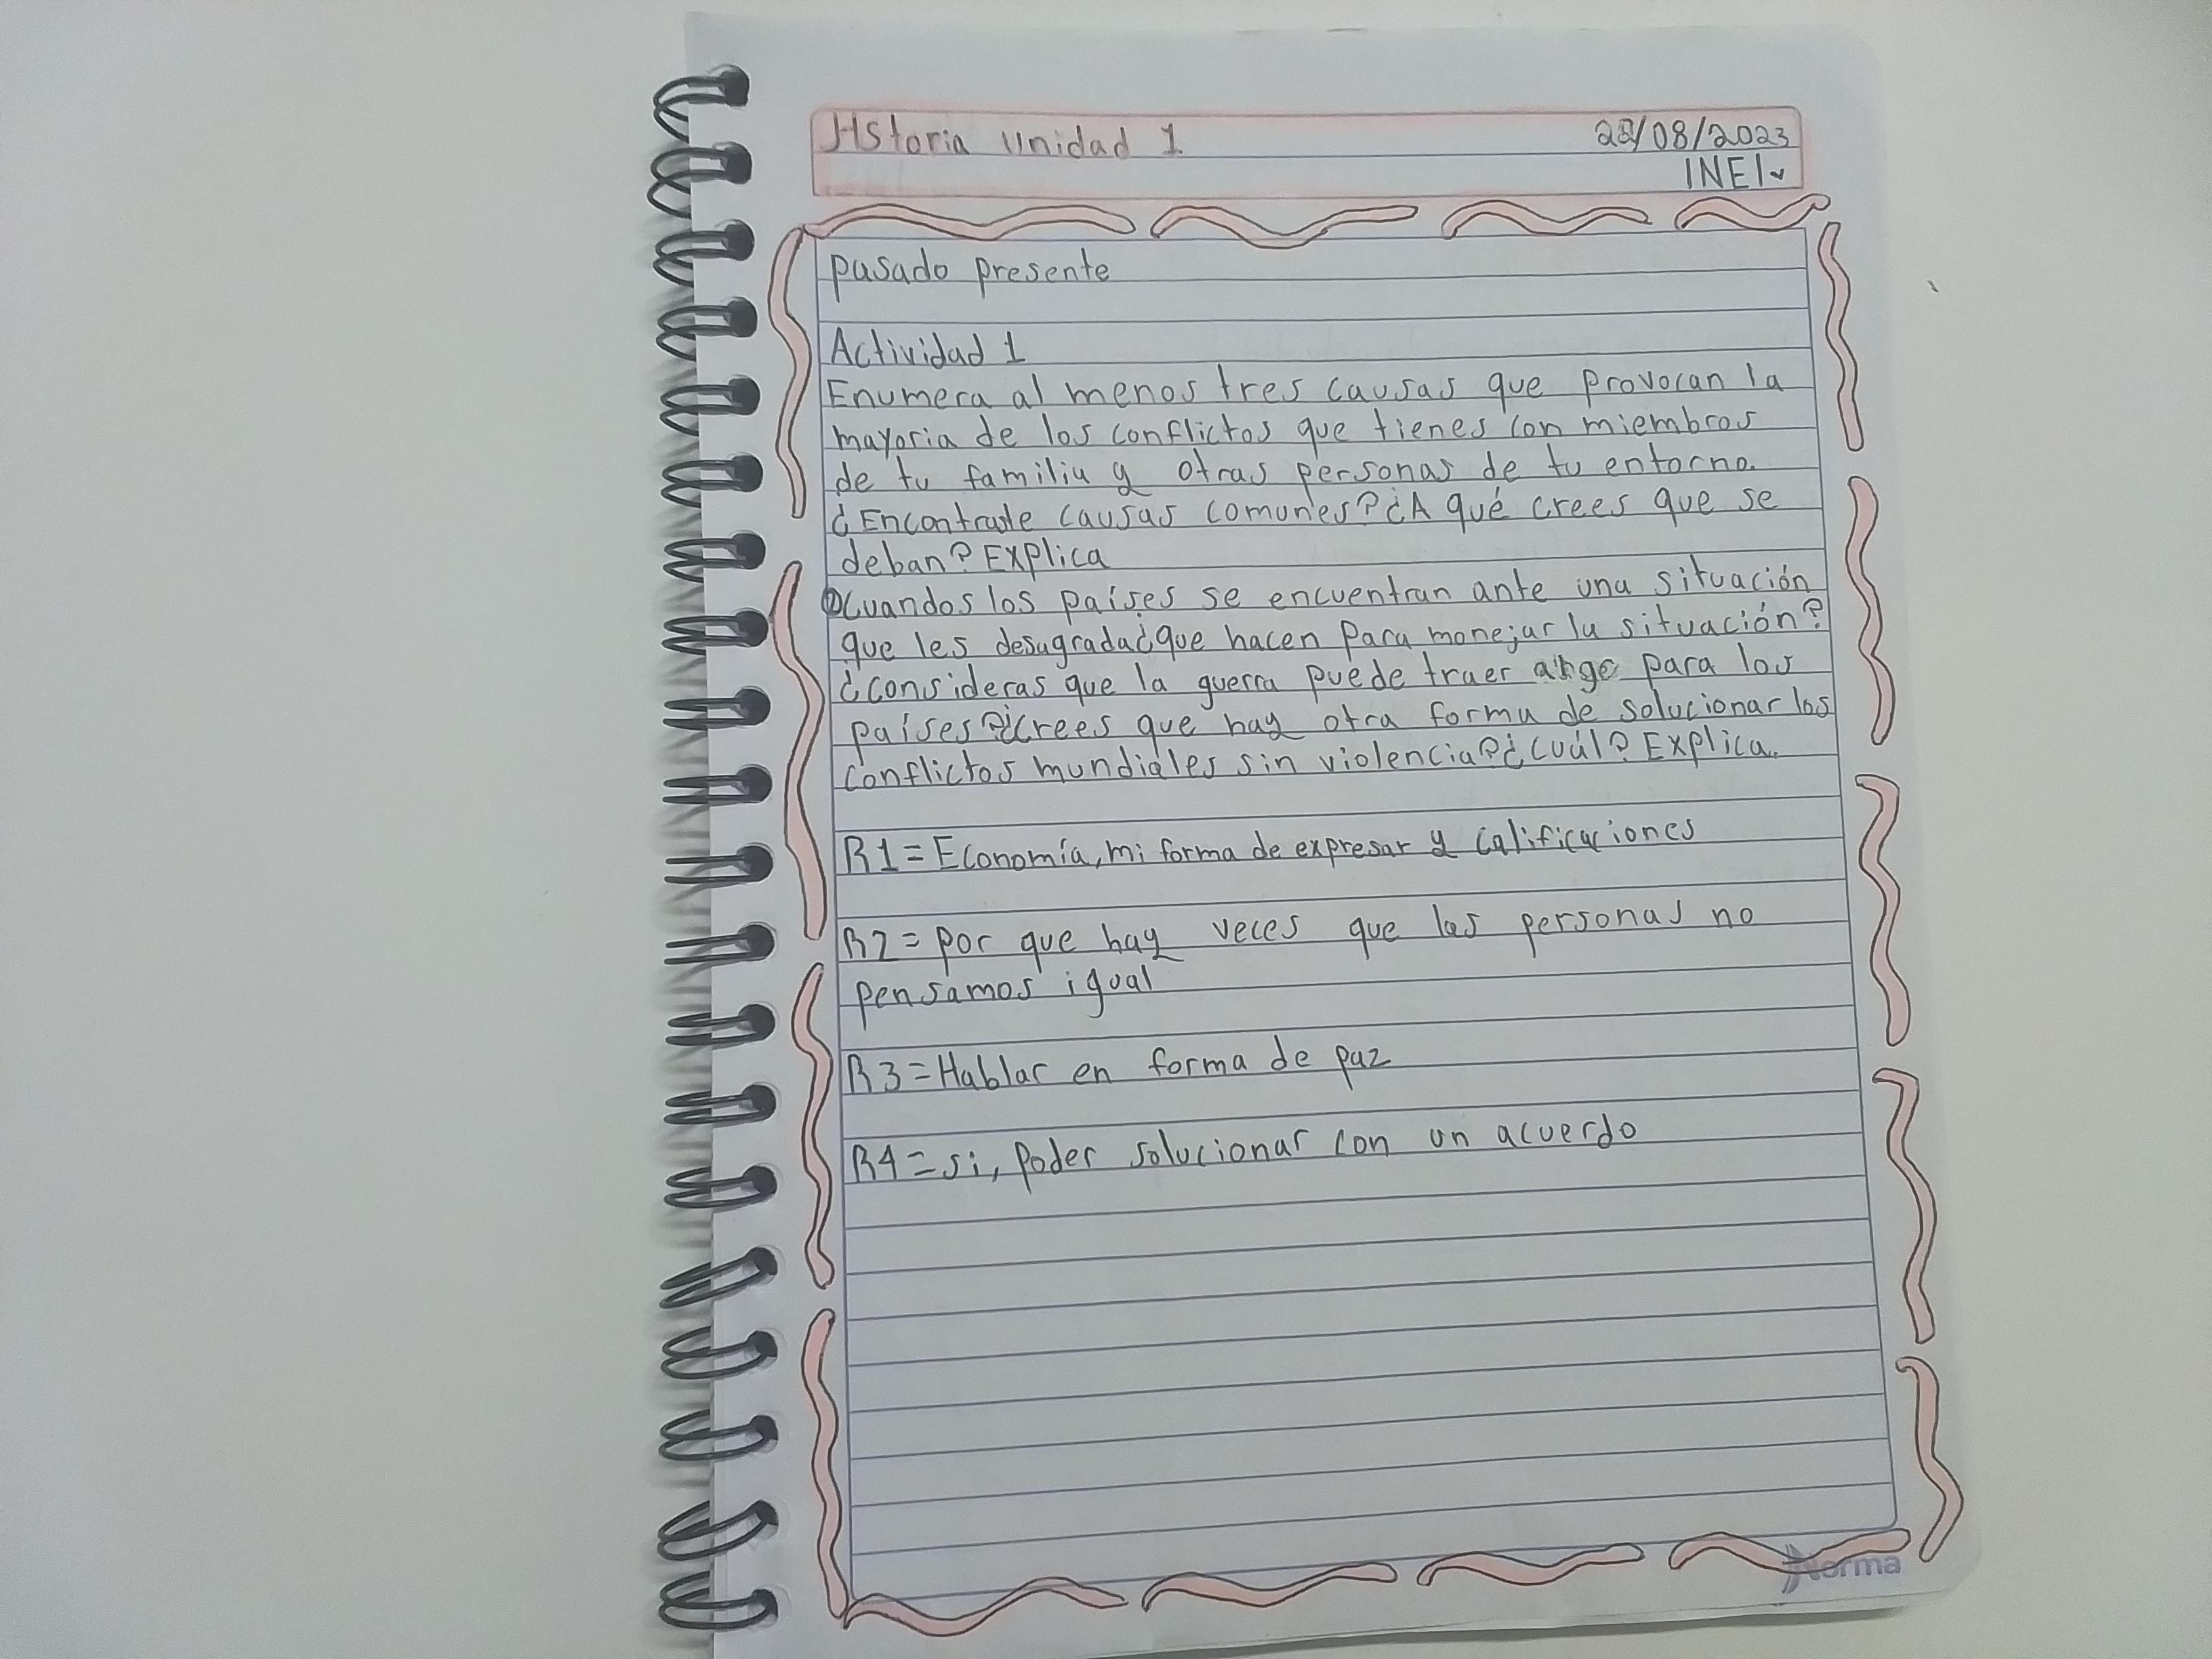 HStoria Unidad 1
/08/2023
INE
pasado presente
Actividad 1
Enumera al menos tres causas que provocan la
mayoria de los conflictos que tienes con miembros
de tu familia y otras personas de tu entorno.
¿Encontraste causas comunes? ¿A qué crees que se
deban? Explica
Cuandos los países se encuentran ante una situación
que les desagrada ¿que hacen para monejar la situación?
¿consideras que la guerra puede traer para los
países? ¿crees que hay otra forma de solucionar los
conflictos mundiales sin violencia? ¿cuál? Explica.
R1 = Economía, mi forma de expresar y calificaciones
R2 = por que hay veces que las personas no
pensamos igual
R3 = Hablar en forma de paz
R4 = si, poder solucionar con un acuerdo
Norma